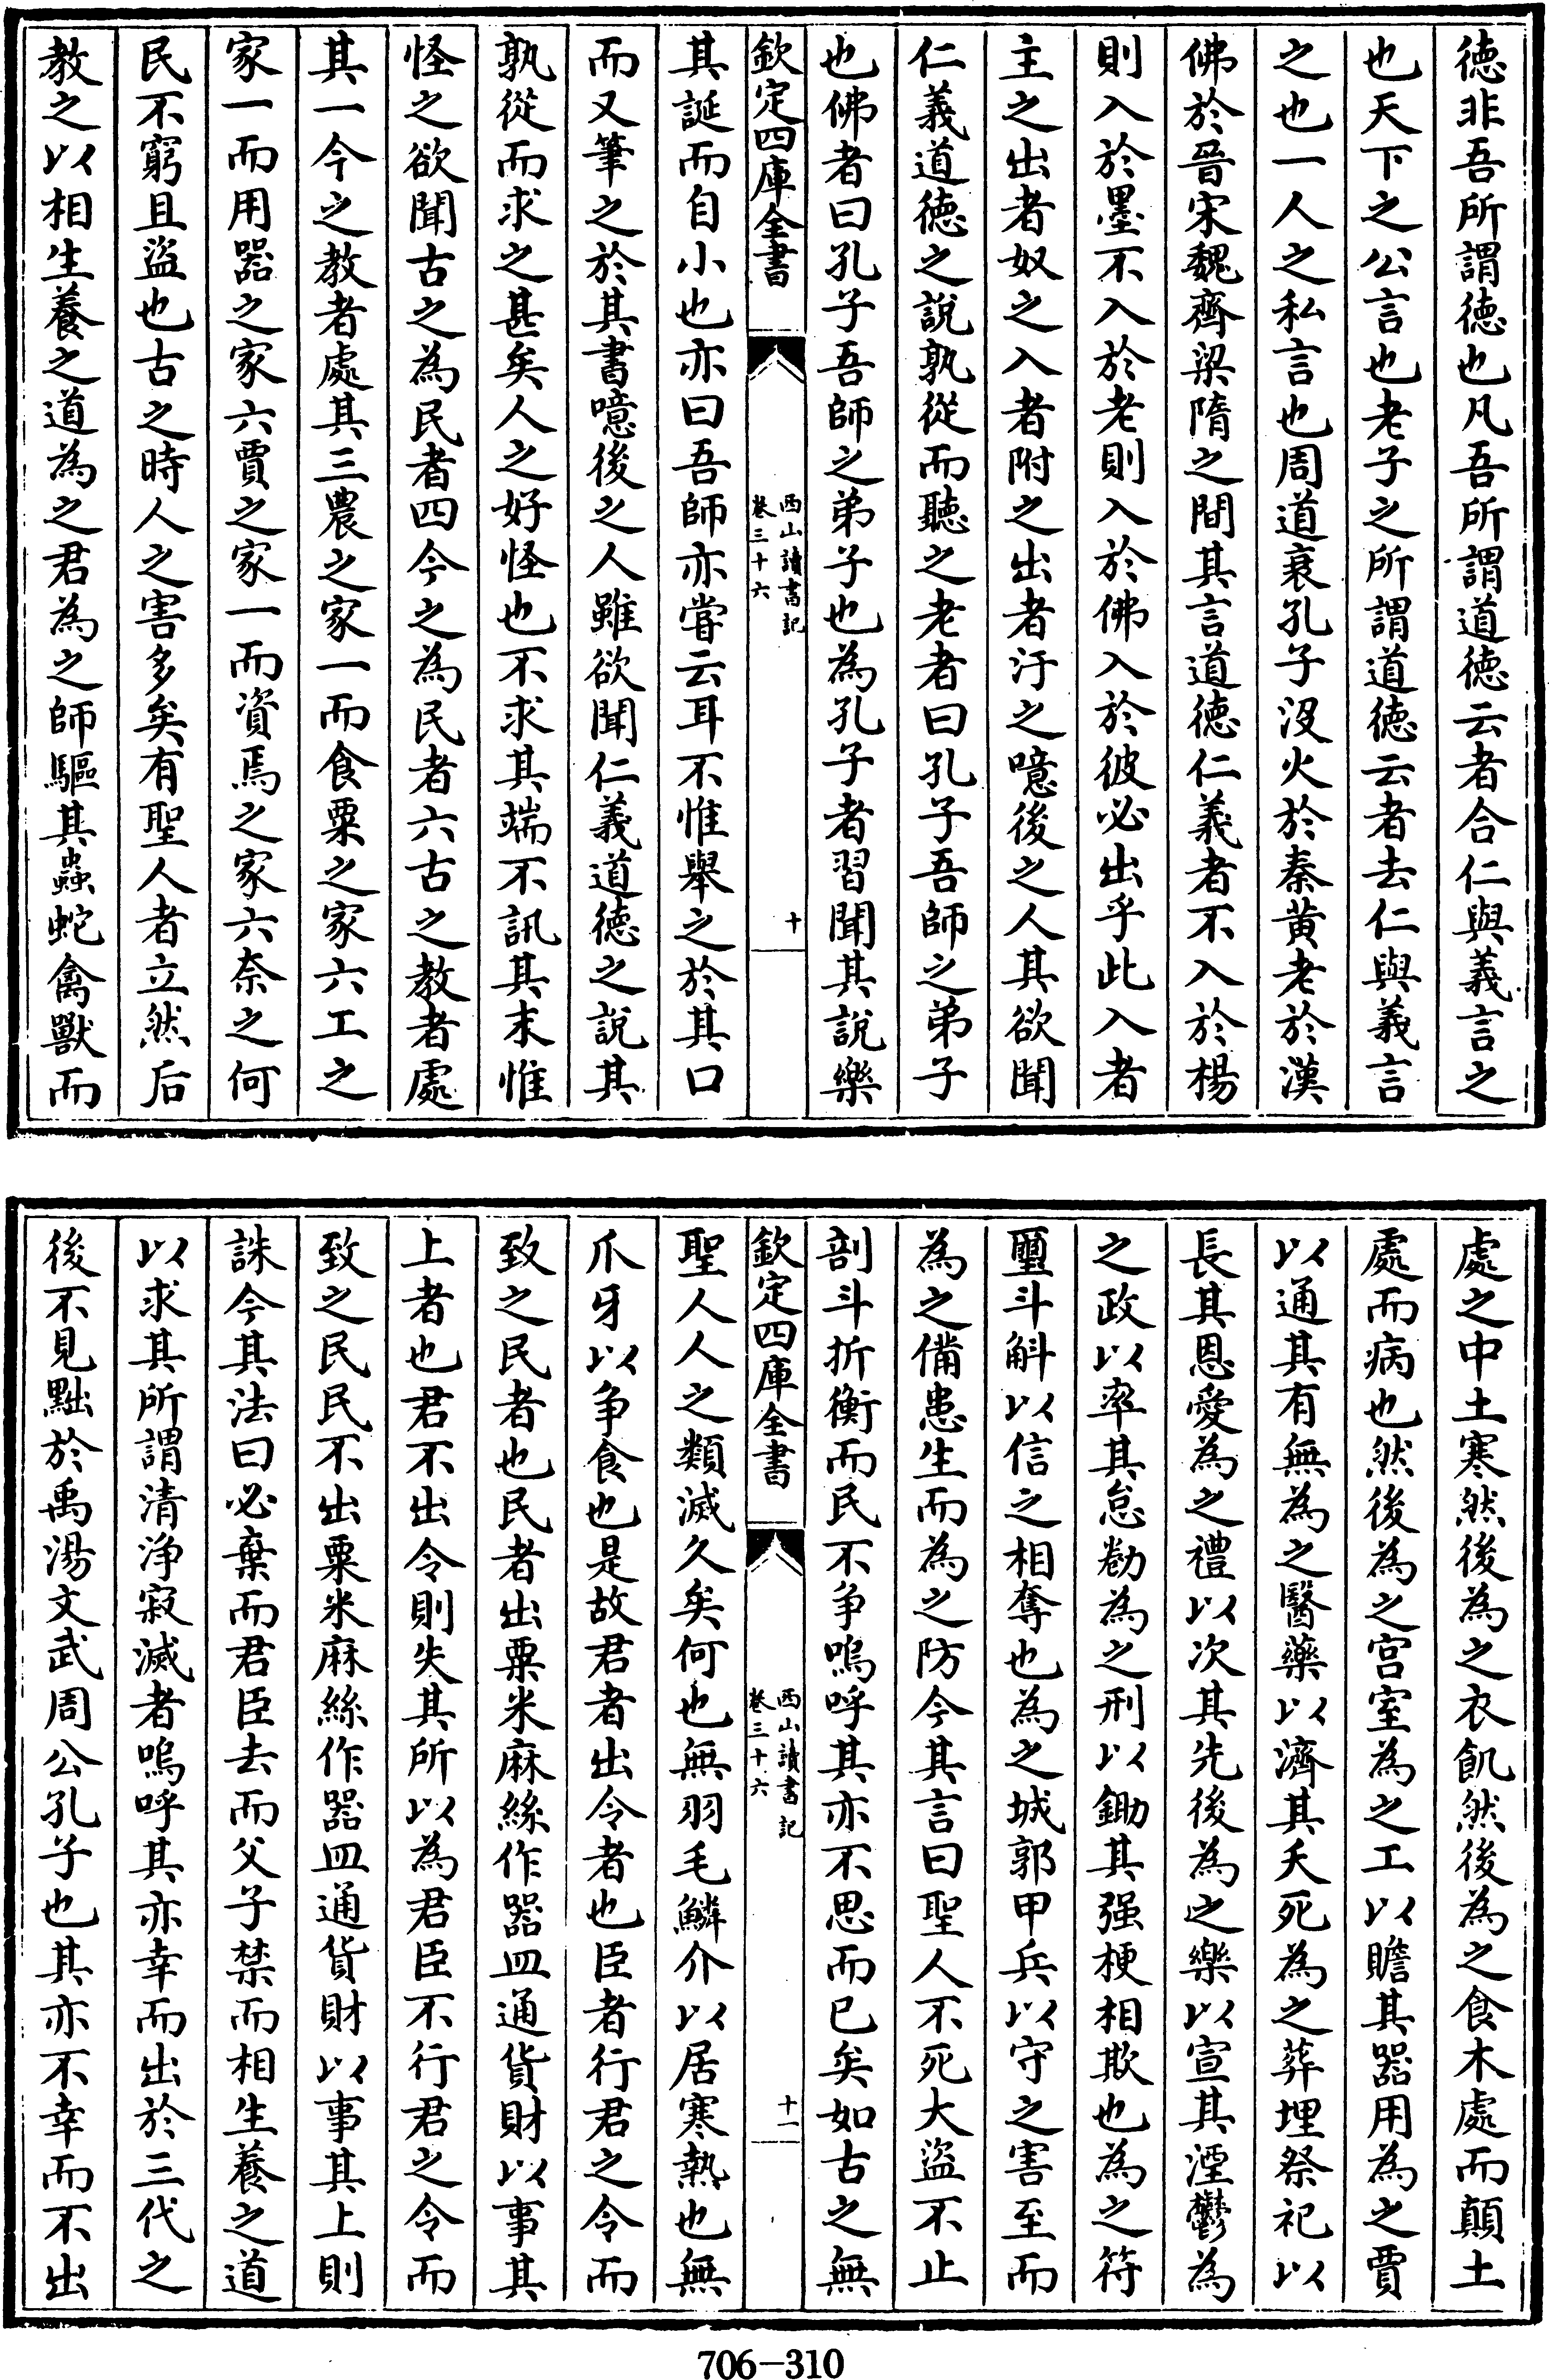 徳非吾所謂徳也凡吾所謂道徳云者合仁與義言之
也天下之公言也老子之所謂道徳云者去仁與義言
之也一人之私言也周道衰孔子没火於秦黄老於漢
佛於晉宋魏齊梁隋之間其言道徳仁義者不入於楊
則入於墨不入於老則入於佛入於彼必出乎此入者
主之出者奴之入者附之出者汙之噫後之人其欲聞
仁義道徳之說孰從而聽之老者曰孔子吾師之弟子
也佛者曰孔子吾師之弟子也為孔子者習聞其說樂
欽定四庫全書
西山讀書記
卷三十六
十
其誕而自小也亦曰吾師亦嘗云耳不惟舉之於其口
而又筆之於其書噫後之人雖欲聞仁義道徳之說其
孰從而求之甚矣人之好怪也不求其端不訊其末惟
怪之欲聞古之為民者四今之為民者六古之教者處
其一今之教者處其三農之家一而食粟之家六工之
家一而用器之家六賈之家一而資焉之家六奈之何
民不窮且盜也古之時人之害多矣有聖人者立然后
教之以相生養之道為之君為之師驅其蟲蛇禽獸而
處之中土寒然後為之衣飢然後為之食木處而顛土
處而病也然後為之宫室為之工以贍其器用為之賈
以通其有無為之醫藥以濟其夭死為之葬埋祭祀以
長其恩愛為之禮以次其先後為之樂以宣其湮鬱為
之政以率其怠勌為之刑以鋤其强梗相欺也為之符
璽斗斛以信之相奪也為之城郭甲兵以守之害至而
為之備患生而為之防今其言曰聖人不死大盜不止
剖斗折衡而民不争嗚呼其亦不思而已矣如古之無
欽定四庫全書
西山讀書記
卷三十六
十一
聖人人之類滅久矣何也無羽毛鱗介以居寒熱也無
爪牙以争食也是故君者出令者也臣者行君之令而
致之民者也民者出粟米麻絲作器皿通貨財以事其
上者也君不出令則失其所以為君臣不行君之令而
致之民民不出粟米麻絲作器皿通貨財以事其上則
誅今其法曰必棄而君臣去而父子禁而相生養之道
以求其所謂清浄寂滅者嗚呼其亦幸而出於三代之
後不見黜於禹湯文武周公孔子也其亦不幸而不出
706-310